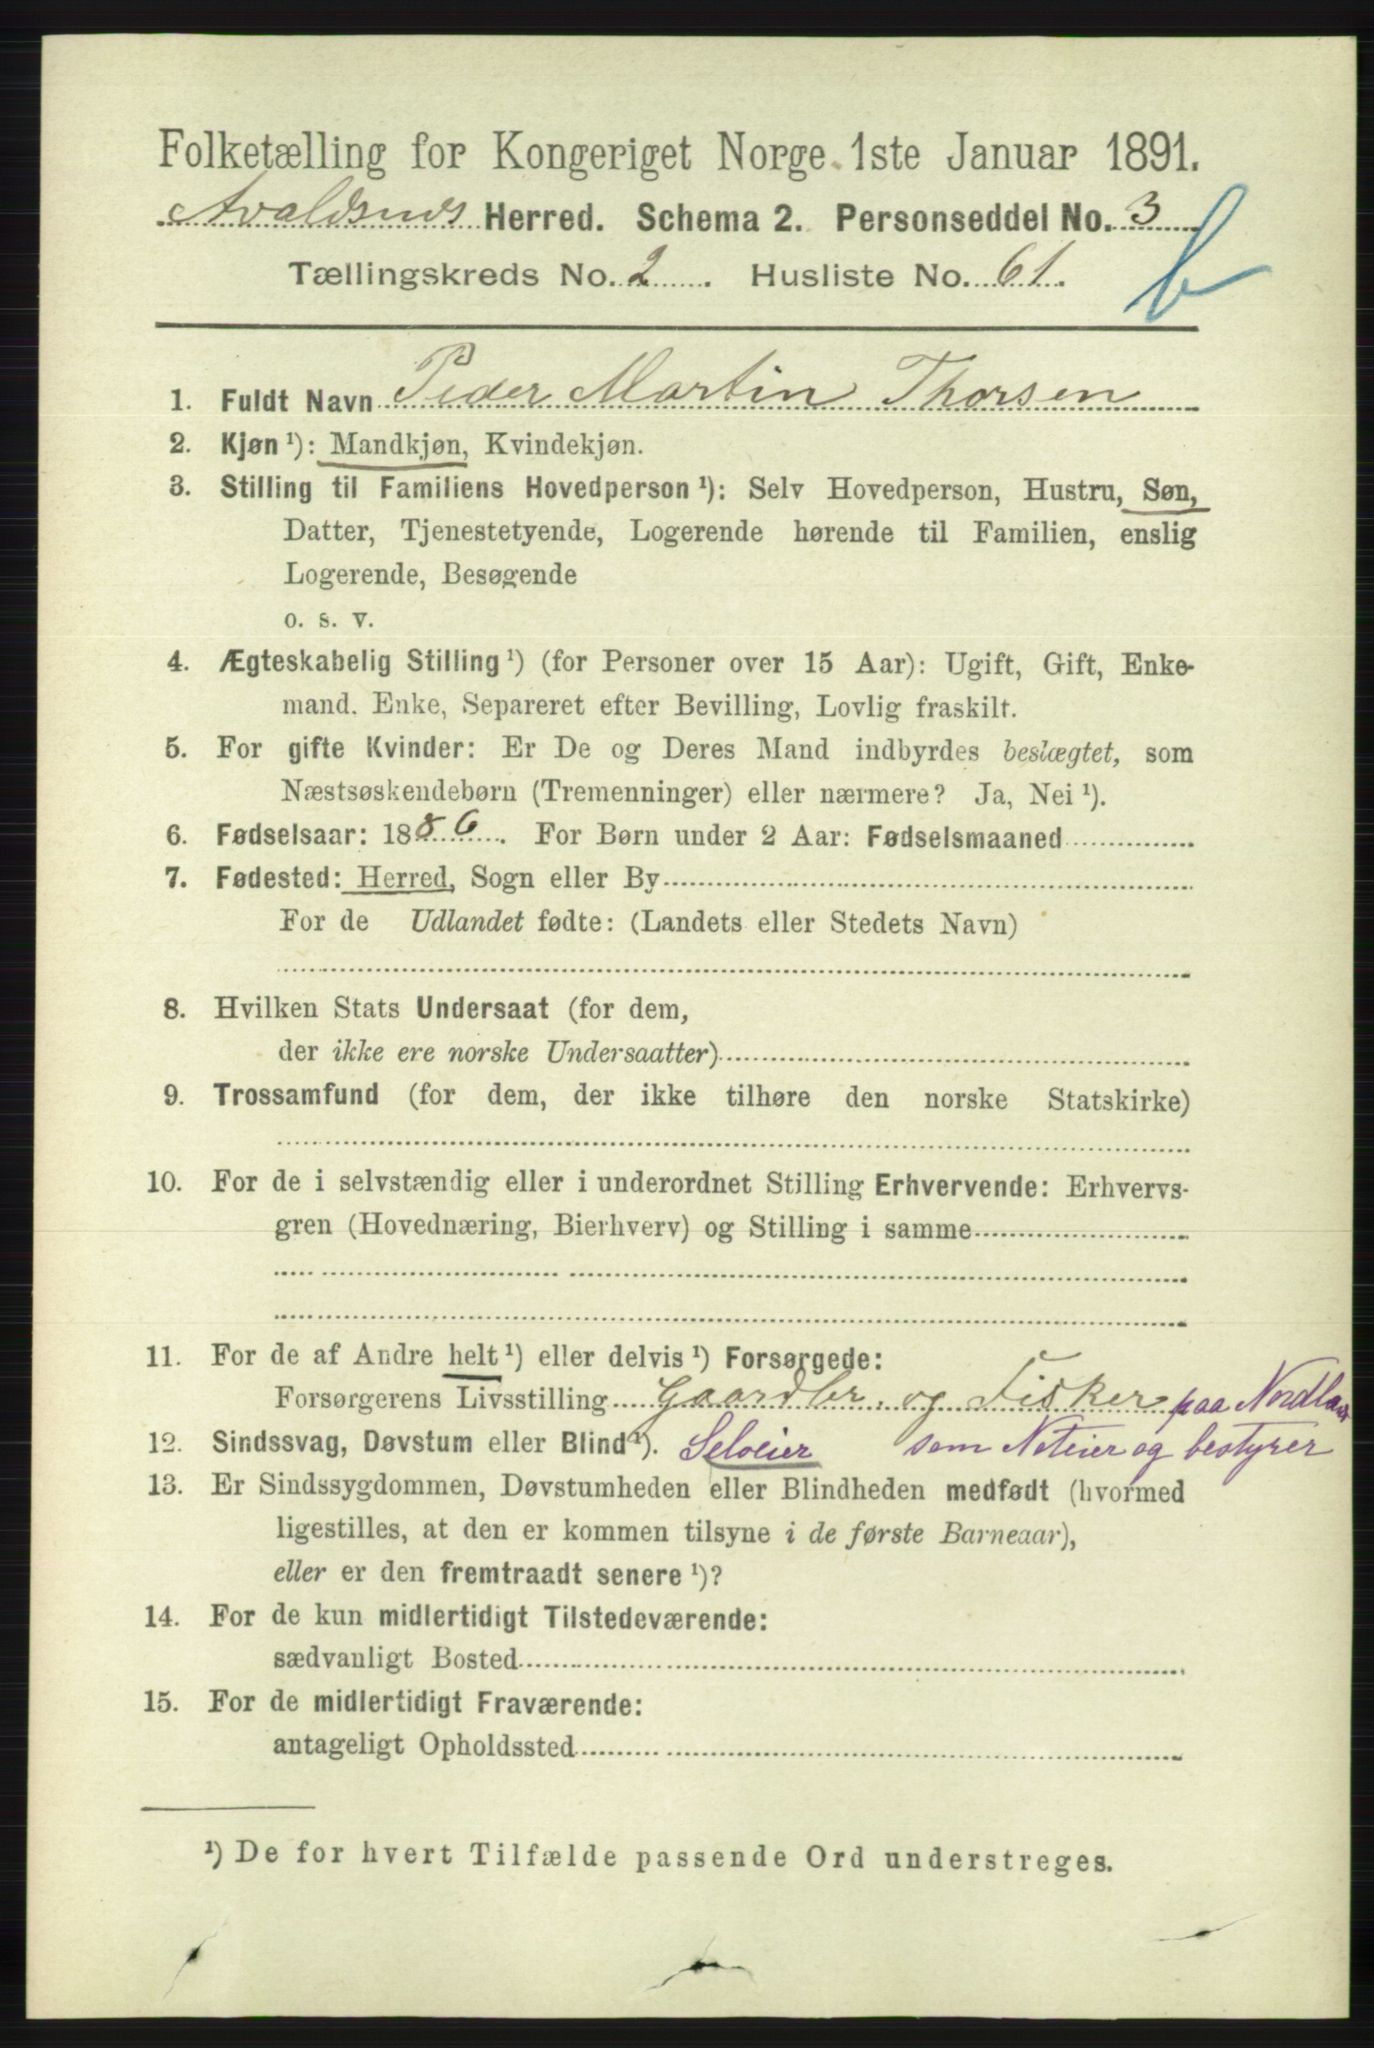 Folketælling for Kongeriget Norge 1ste Januar 1891.
Avaldsnes Herred. Schema 2. Personseddel No. 3
b
Tællingskreds No. 2. Husliste No. 61.
1. Fuldt Navn Peder Martin Thorsen
2. Kjøn ¹): Mandkjøn, Kvindekjøn.
3. Stilling til Familiens Hovedperson ¹): Selv Hovedperson, Hustru, Søn,
Datter, Tjenestetyende, Logerende hørende til Familien, enslig
Logerende, Besøgende
o. s. v.
4. Ægteskabelig Stilling ¹) (for Personer over 15 Aar): Ugift, Gift, Enke-
mand. Enke, Separeret efter Bevilling, Lovlig fraskilt.
5. For gifte Kvinder: Er De og Deres Mand indbyrdes beslægtet, som
Næstsøskendebørn (Tremenninger) eller nærmere? Ja, Nei ¹).
6. Fødselsaar: 1886. For Børn under 2 Aar: Fødselsmaaned
7. Fødested: Herred, Sogn eller By
For de Udlandet fødte: (Landets eller Stedets Navn)
8. Hvilken Stats Undersaat (for dem,
der ikke ere norske Undersaatter)
9. Trossamfund (for dem, der ikke tilhøre den norske Statskirke)
10. For de i selvstændig eller i underordnet Stilling Erhvervende: Erhvervs-
gren (Hovednæring, Bierhverv) og Stilling i samme
11. For de af Andre helt ¹) eller delvis ¹) Forsørgede:
Forsørgerens Livsstilling Gaardbr. og Fisker paa Nordland
12. Sindssvag, Døvstum eller Blind ¹). Seleier som Noteier og bestyrer
13. Er Sindssygdommen, Døvstumheden eller Blindheden medfødt (hvormed
ligestilles, at den er kommen tilsyne i de første Barneaar),
eller er den fremtraadt senere ¹)?
14. For de kun midlertidigt Tilstedeværende:
sædvanligt Bosted
15. For de midlertidigt Fraværende:
antageligt Opholdssted
¹) De for hvert Tilfælde passende Ord understreges.